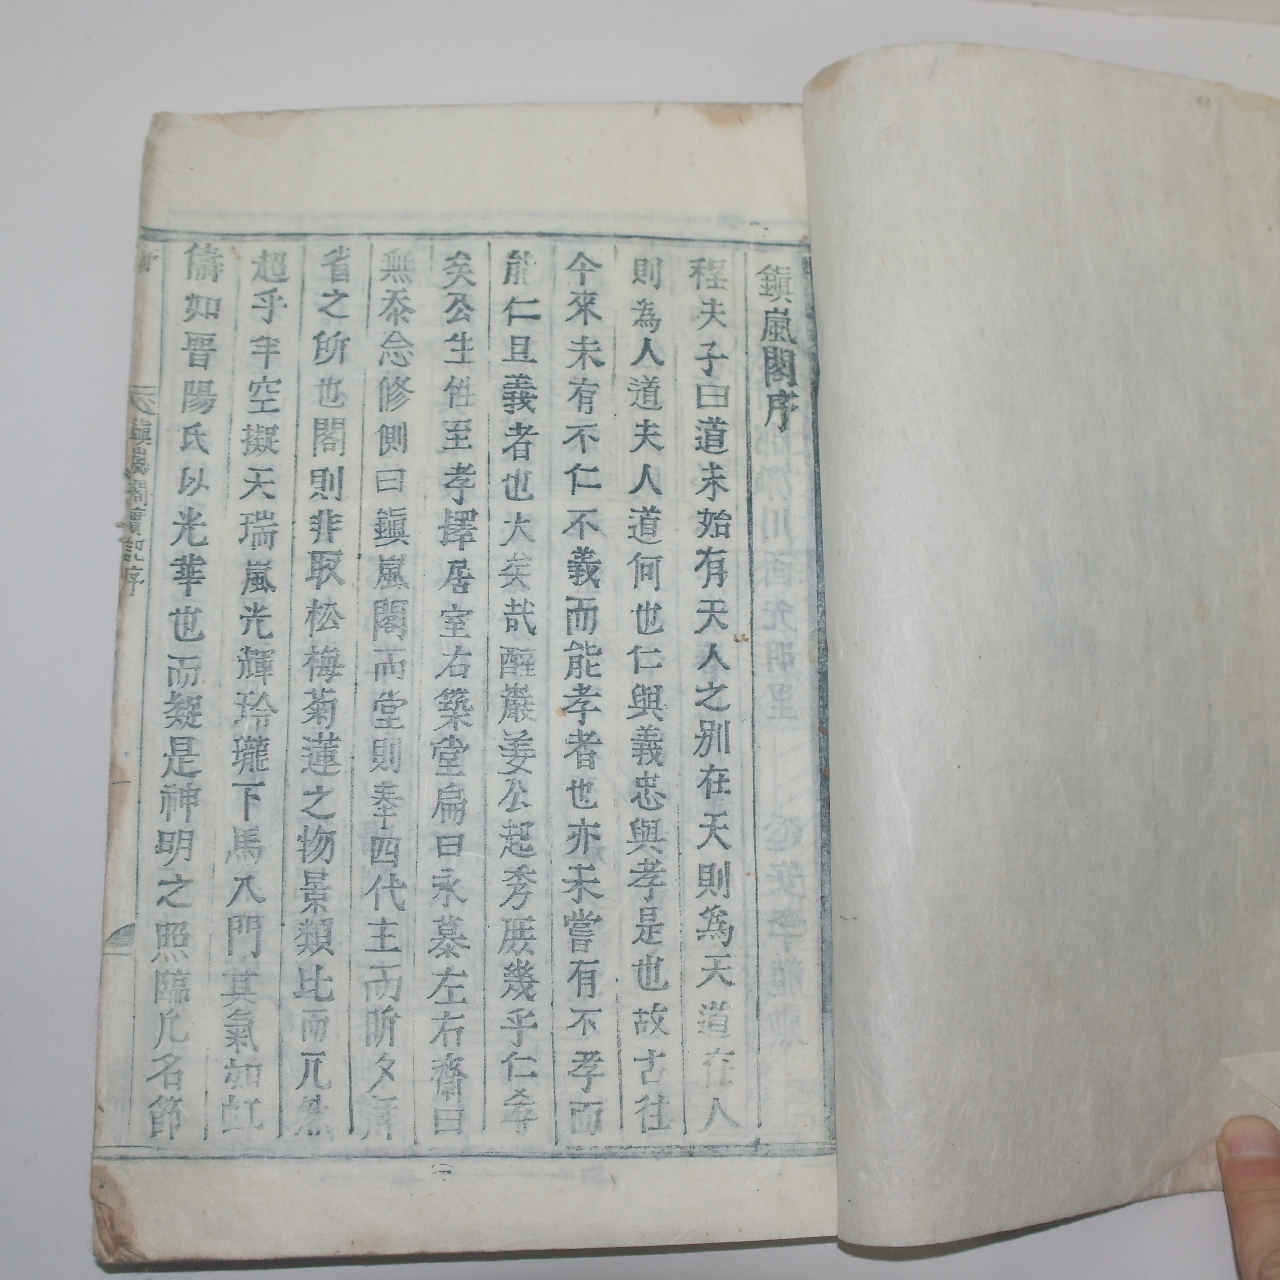 鎭嵐閣序
程夫子曰道未始有天人之別在天則為天道在人
則為人道夫人道何也仁與義忠與孝是也故古往
今來未有不仁不義而能孝者也亦未嘗有不孝而
能仁且義者也大矣哉醒巖姜公起秀庶幾乎仁孝
矣公生性至孝擇居室右築堂扁曰永慕左右齋曰
無忝念修側曰鎭嵐閣而堂則奉四代主而昕夕
省之所也閣則非取松梅菊蓮之物景類比而兀然
超乎半空擬天瑞嵐光輝玲瓏下馬入門其氣如虹
儔如晋陽氏以光華也而疑是神明之照臨凡名節
鎭嵐閣實記序